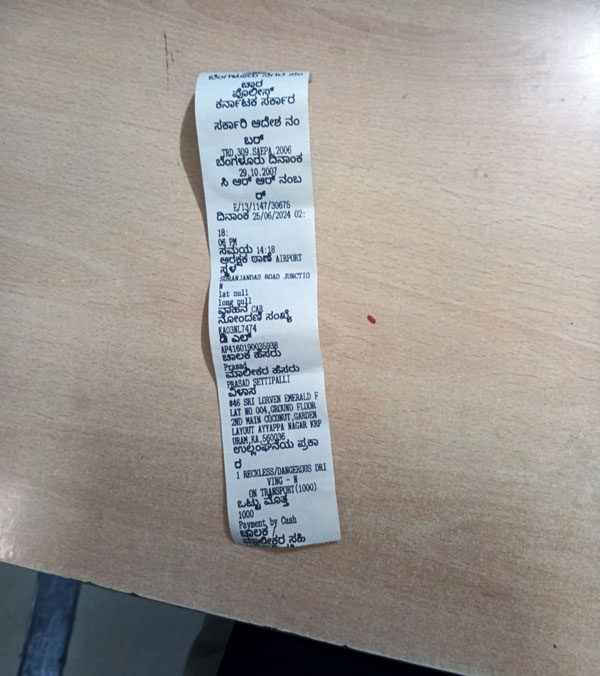 ಬೆಂಗಳೂರು ನಗರ ಸಂ
ಚಾರ
ಪೊಲೀಸ್
ಕರ್ನಾಟಕ ಸರ್ಕಾರ
ಸರ್ಕಾರಿ ಆದೇಶ ನಂ
ಬರ್
TRD,309.SAEPA,2006
ಬೆಂಗಳೂರು ದಿನಾಂಕ
29.10.2007
ಸಿ ಆರ್ ಆರ್ ನಂಬ
ರ್
E/13/1147/30675
ದಿನಾಂಕ 25/06/2024 02:
18:
06 PM
ಸಮಯ 14:18
ಆರಕ್ಷಕ ಠಾಣೆ AIRPORT
ಸ್ಥಳ
SURANJANDAS ROAD JUNCTIO
N
lat null
long null
ವಾಹನ CAR
ನೋಂದಣಿ ಸಂಖ್ಯೆ
KA03NL7474
ಡಿ ಎಲ್
AP4160190035938
ಚಾಲಕ ಹೆಸರು
Prasad
ಮಾಲೀಕರ ಹೆಸರು
PRASAD SETTIPALLI
ವಿಳಾಸ
#46 SRI LORVEN EMERALD F
LAT NO 004,GROUND FLOOR
2ND MAIN COCONUT,GARDEN
LAYOUT AYYAPPA NAGAR KRP
URAM,KA,560036
ಉಲ್ಲಂಘನೆಯ ಪ್ರಕಾ
ರ
1 RECKLESS/DANGEROUS DRI
VING - N
ON TRANSPORT(1000)
ಒಟ್ಟು ಮೊತ್ತ
1000
Payment by Cash
ಚಾಲಕ /
ಮಾಲೀಕರ ಸಹಿ